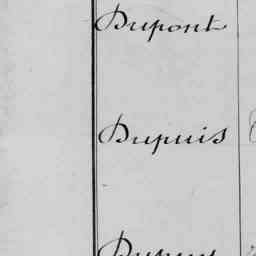 Dupont
Dupuis